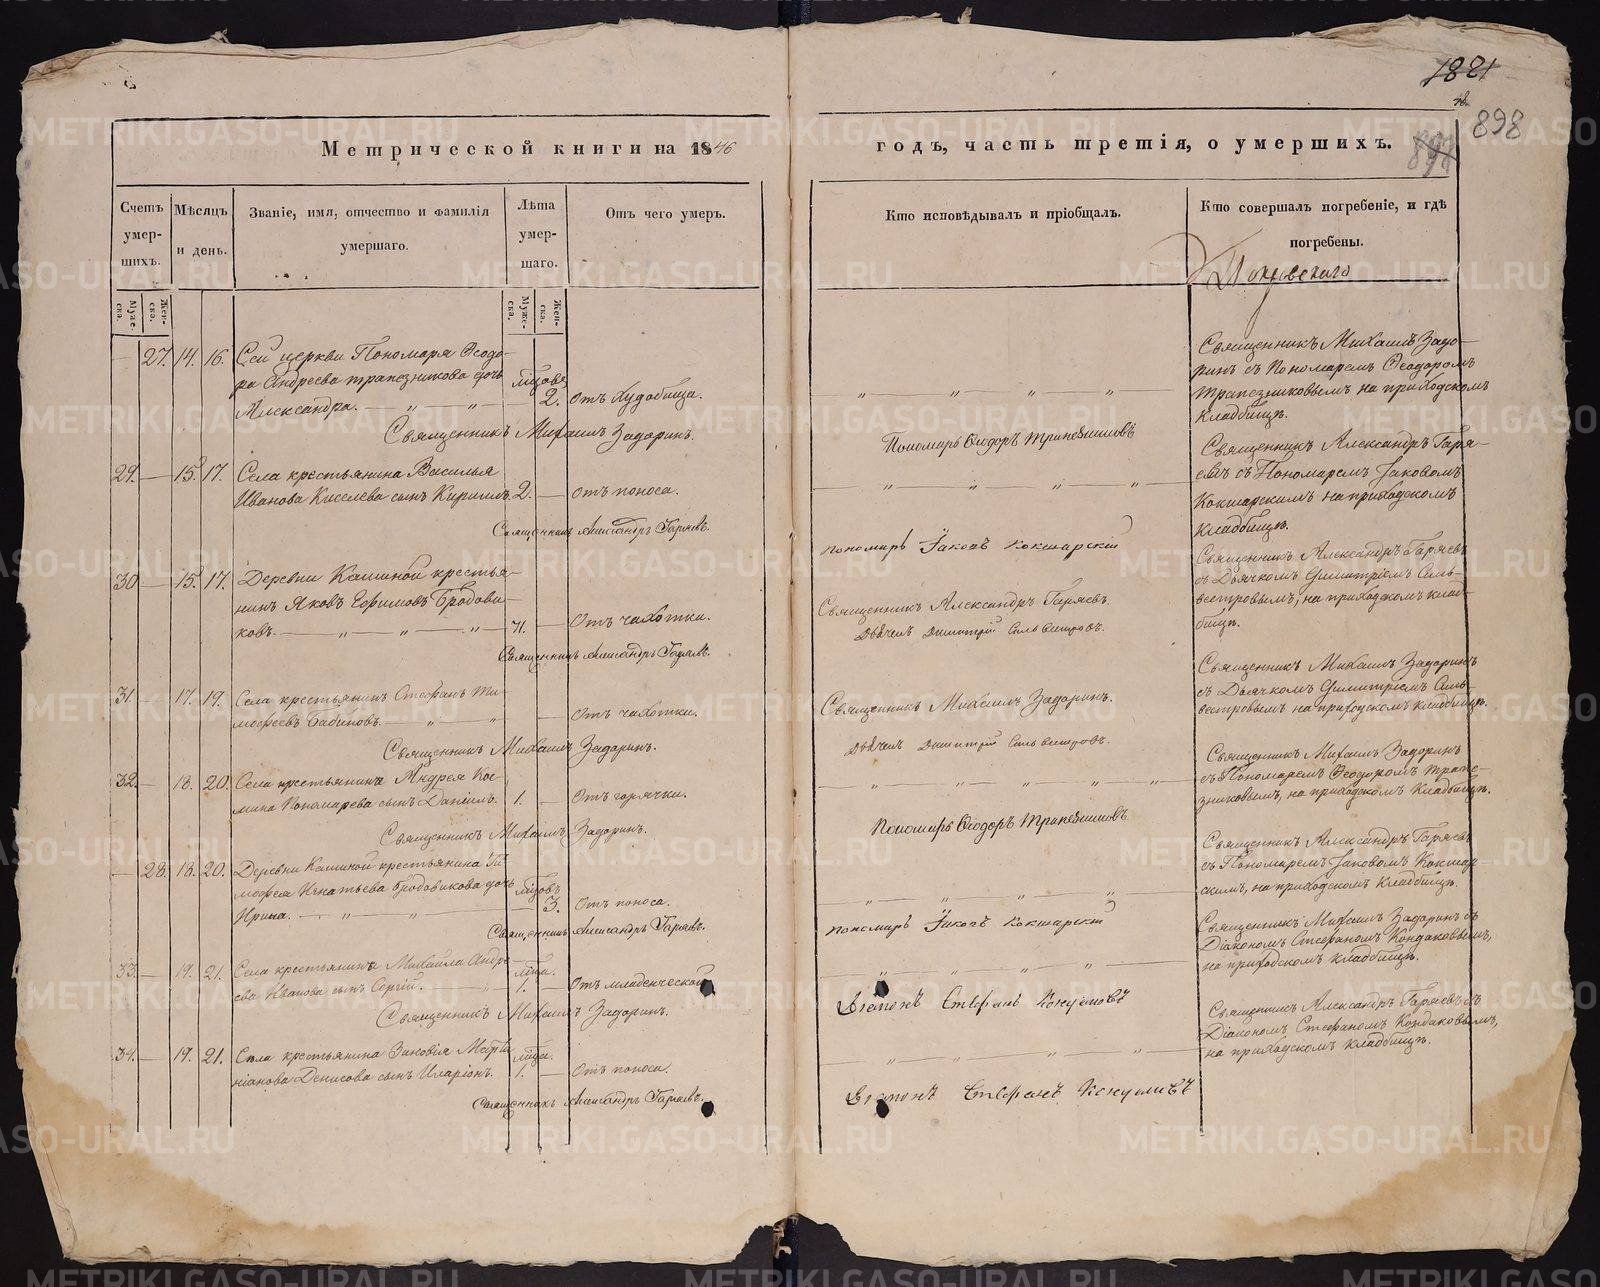 1881
48
898
898
Метрической книги на 1846
годъ, часть третія, о умершихъ.
Счетъ умершихъ.
Мѣсяцъ и день.
Званіе, имя, отчество и фамилія умершаго.
Лѣта умершаго.
Отъ чего умеръ.
Кто исповѣдывалъ и пріобщалъ.
Кто совершалъ погребеніе, и гдѣ погребены.
Покровскаго
Муже-ска.
Жен-ска.
Муже-ска.
Жен-ска.
— 27. 14. 16. Сей церкви Пономаря Ѳеодо-
ра Андреева Трапезникова дочь
Александра. 2. Отъ худобища.
Священникъ Михаилъ Задоринъ.
Пономарь Ѳеодоръ Трапезниковъ
Священникъ Михаилъ Задо-
ринъ съ Пономаремъ Ѳеодоромъ
Трапезниковымъ на приходскомъ
кладбищѣ.
29. — 15. 17. Села крестьянина Василья
Иванова Киселева сынъ Кириллъ 2. — отъ поноса.
Священникъ Александръ Гаряевъ.
Пономарь Іаковъ Кокшарскій
Священникъ Александръ Гаря-
евъ съ Пономаремъ Іаковомъ
Кокшарскимъ на приходскомъ
кладбищѣ.
30 — 15. 17. Деревни Кашиной крестья-
нинъ Яковъ Ефимовъ Бродови-
ковъ. 71. — Отъ чахотки.
Священникъ Александръ Гаряевъ.
Священникъ Александръ Гаряевъ.
Дьячекъ Димитрій Сильвестровъ.
Священникъ Александръ Гаряевъ
съ Дьячкомъ Димитріемъ Силь-
вестровымъ, на приходскомъ клад-
бищѣ.
31. — 17. 19. Села крестьянинъ Стефанъ Ти-
мофеевъ Бабиновъ. — Отъ чахотки.
Священникъ Михаилъ Задоринъ.
Священникъ Михаилъ Задоринъ.
Дьячекъ Димитрій Сильвестровъ.
Священникъ Михаилъ Задоринъ
съ Дьячкомъ Димитріемъ Силь-
вестровымъ на приходскомъ кладбищѣ.
32. — 18. 20. Села крестьянина Андрея Кос-
мина Пономарева сынъ Даніилъ. 1. — Отъ горячки.
Священникъ Михаилъ Задоринъ.
Пономарь Ѳеодоръ Трапезниковъ
Священникъ Михаилъ Задоринъ
съ Пономаремъ Ѳеодоромъ Трапе-
зниковымъ, на приходскомъ кладбищѣ.
— 28. 18. 20. Деревни Кашиной крестьянина Ти-
мофея Игнатьева Бродовикова дочь
Ирина. 3. Отъ поноса.
Священникъ Александръ Гаряевъ.
Пономарь Іаковъ Кокшарскій
Священникъ Александръ Гаряевъ
съ Пономаремъ Іаковомъ Кокшар-
скимъ, на приходскомъ кладбищѣ.
33. — 19. 21. Села крестьянина Михаила Андре-
ева Иванова сынъ Сергій. 1. — Отъ младенческой
Священникъ Михаилъ Задоринъ.
Діаконъ Стефанъ Кондаковъ
Священникъ Михаилъ Задоринъ съ
Діакономъ Стефаномъ Кондаковымъ,
на приходскомъ кладбищѣ.
34. — 19. 21. Села крестьянина Зиновія Марти-
ніанова Денисова сынъ Иларіонъ. 1. — Отъ поноса.
Священникъ Александръ Гаряевъ.
Діаконъ Стефанъ Кондаковъ
Священникъ Александръ Гаряевъ съ
Діакономъ Стефаномъ Кондаковымъ,
на приходскомъ кладбищѣ.
METRIKI.GASO-URAL.RU